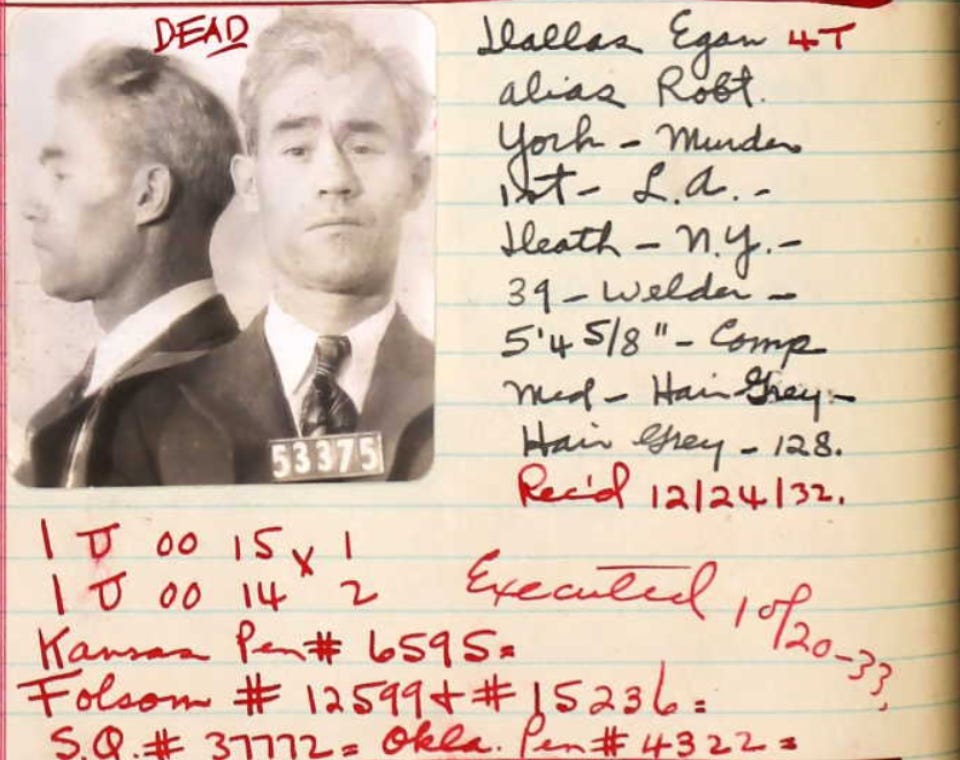 DEAD
53375
Dallas Egan 4T
alias Robt.
York - Murder
1st - L.A. -
Death - N.Y. -
39 - Welder -
5'4 5/8" - Comp
Med - Hair Grey -
Hair Grey - 128.
Rec'd 12/24/32.
1 U 00 15 x 1
1 U 00 14 2
Executed 10/20-33
Kansas Pen # 6595 =
Folsom # 12599 + # 15236 =
S.Q. # 37772 = Okla. Pen # 4322 =